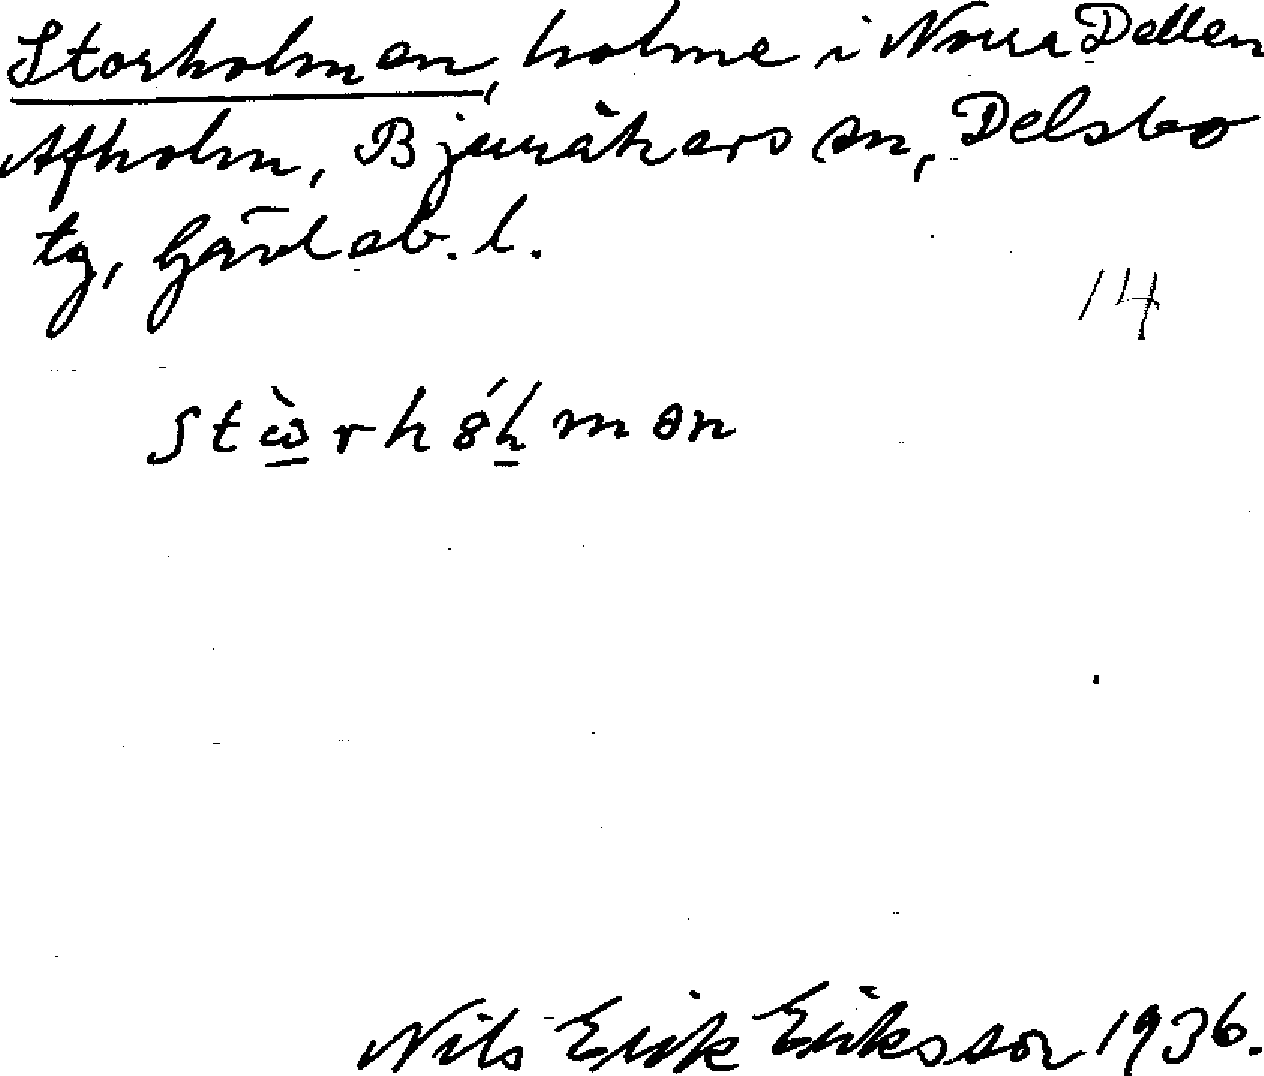 Storholmen, holme i Norra Dellen
Afholm, Bjuråkers sn, Delsbo
tg, Gävleb. l.
14
Nils Erik Eriksson 1936.